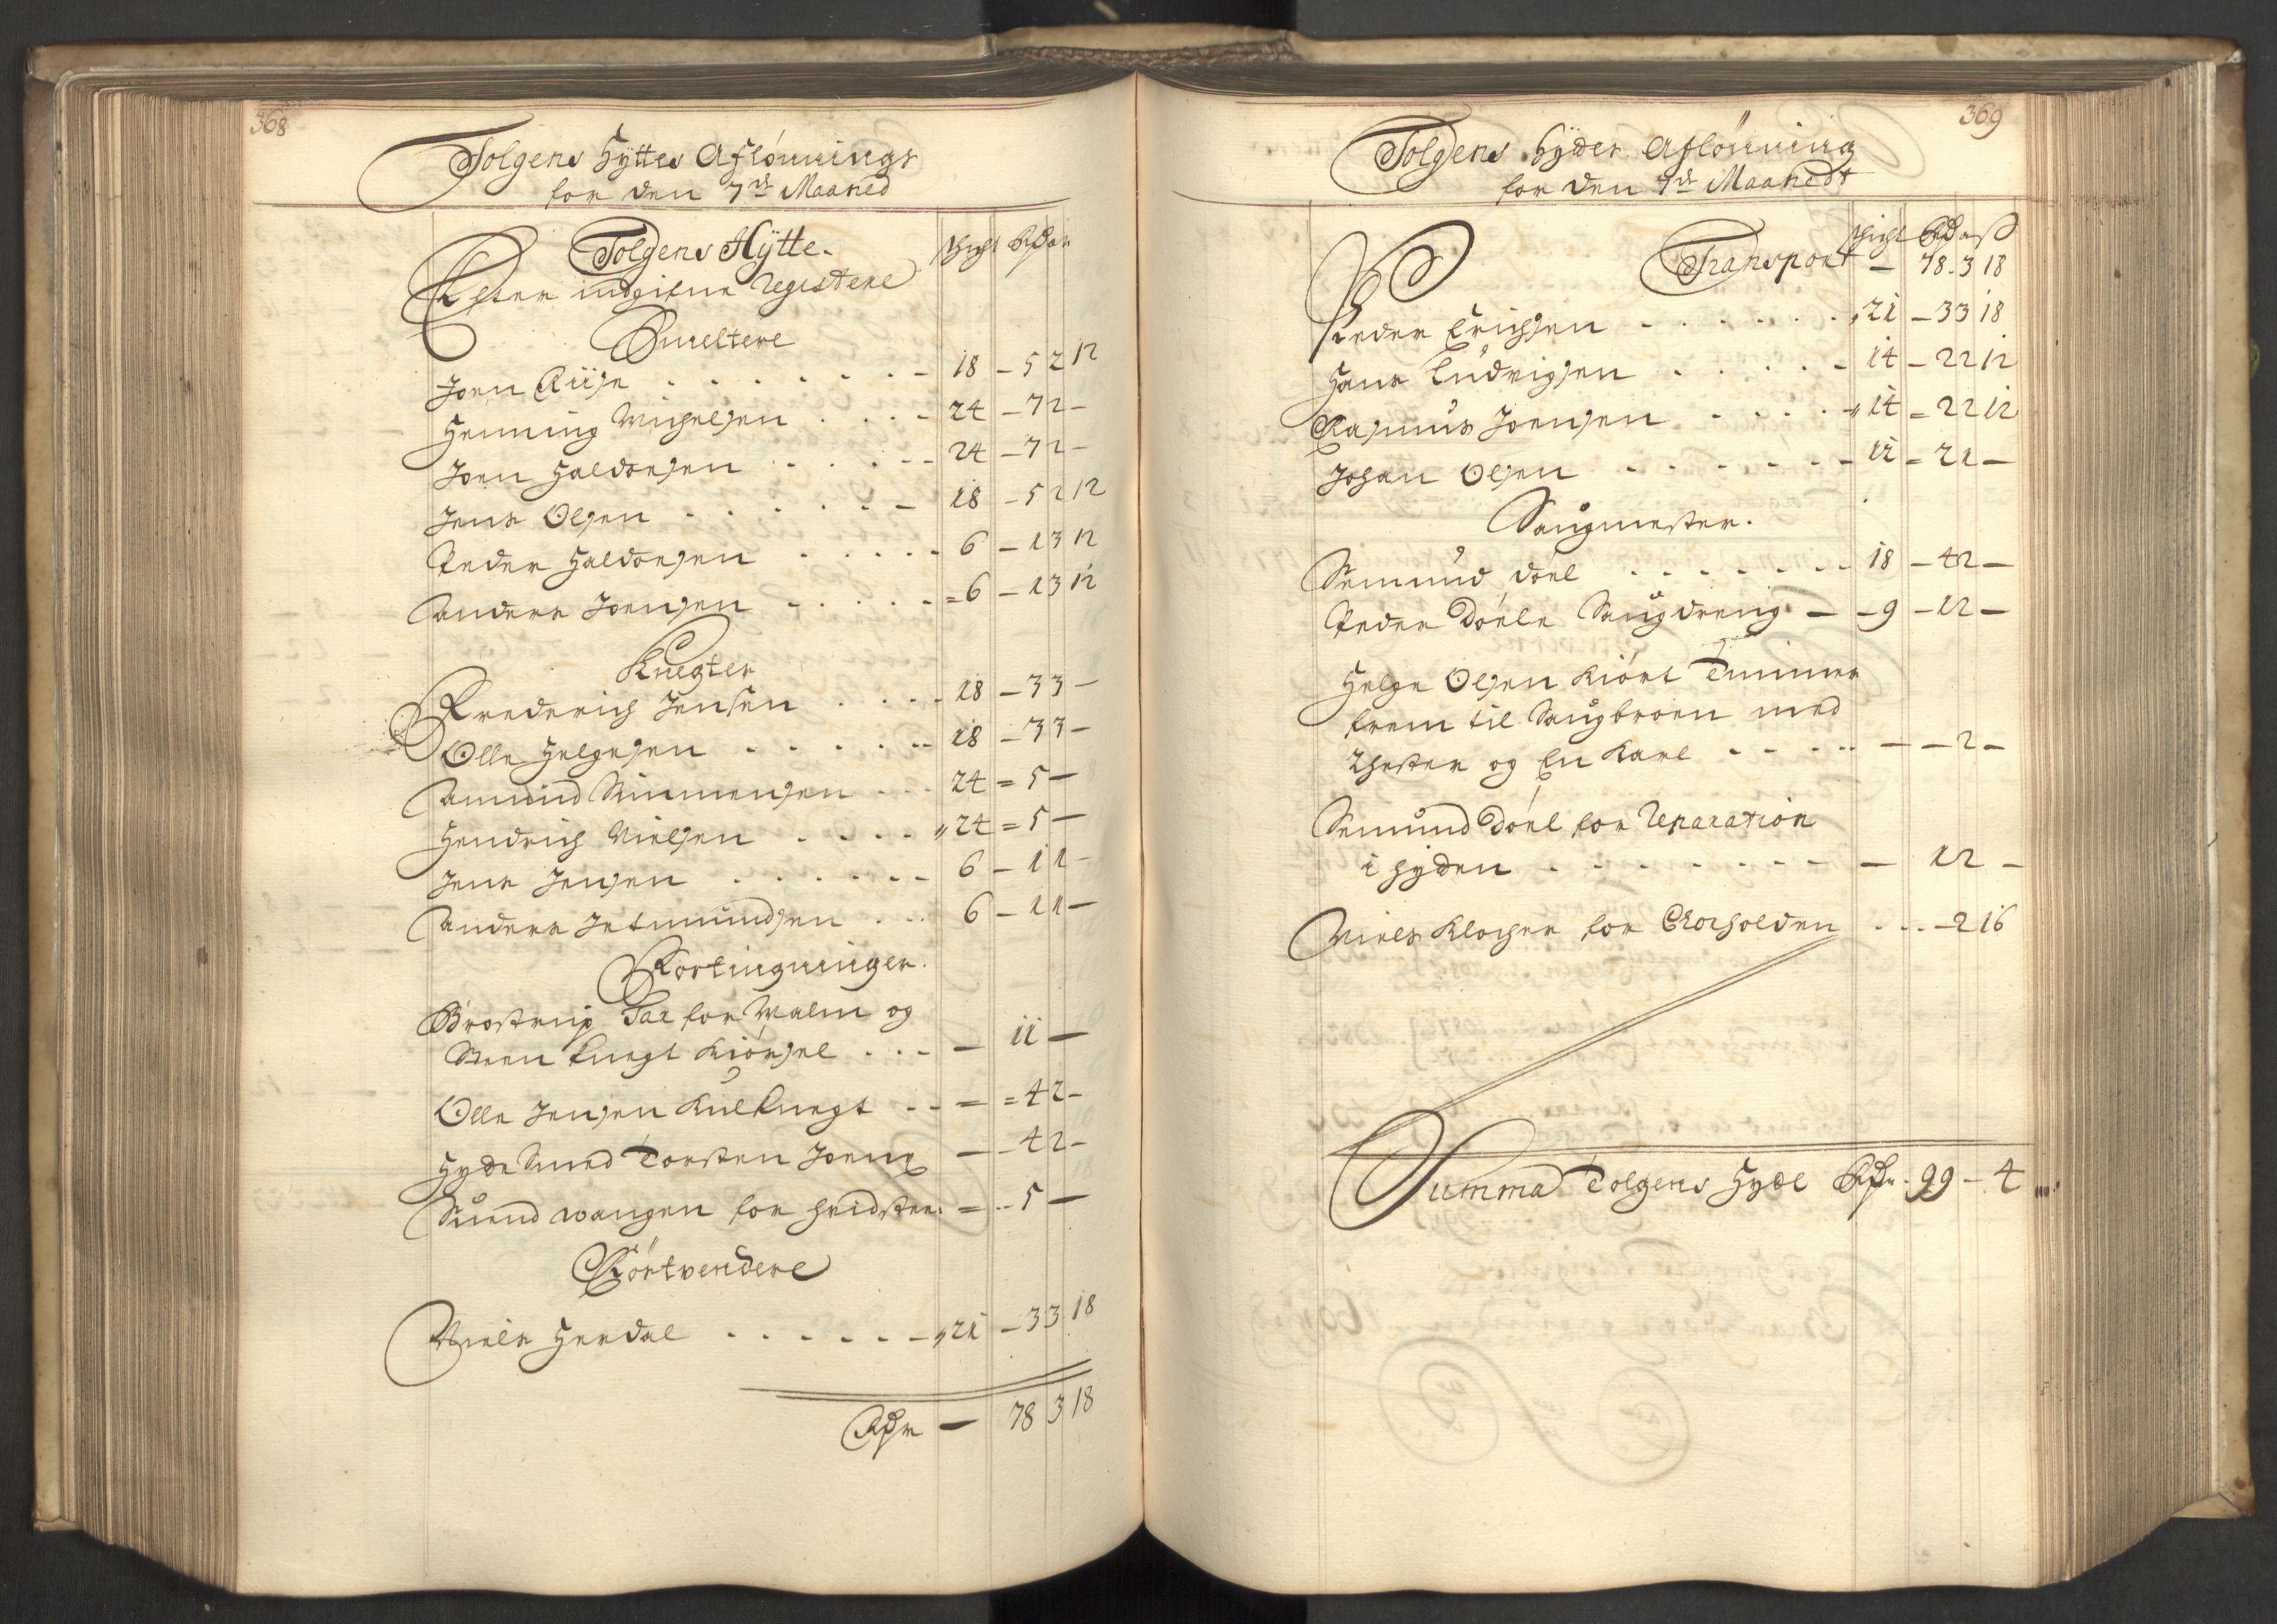 368
Tolgens Hÿttes Aflønnings
for den 7de Maaned
Tolgens Hÿtte.
Efter indgifne Registere
Schicht Rdr ort
Smeltere
Joen Riise - 18 - 5 2 12
Henning Michelsen - 24 - 7 2 -
Joen Haldorsen - 24 - 7 2 -
Jens Olsen - 18 - 5 2 12
Peder Haldorsen - 6 - 1 3 12
Anders Joensen - 6 - 1 3 12
Knegter
Frederich Jensen - 18 - 3 3 -
Olle Helgesen - 18 - 3 3 -
Amund Simmensen - 24 = 5 -
Hendrich Nielsen - 24 = 5 -
Jens Jensen - 6 - 1 1 -
Anders Jetmundsen - 6 - 1 1 -
Fortingninger.
Brostrup Sax for Malm og
Steen Knegt Kiørsel - 11 -
Olle Jensen Kulknegt - = 4 2 -
Hytte Smed Torsten Joens - 4 2 -
Svend Wangen for hridster. = 5 -
Røstvendere
Niels Herdal - 21 - 3 3 18
Rdr - 78 3 18
369
Tolgens Hyttes Aflønning
for den 7de Maaned
Schicht Rdr ort ß
Transport - 78 . 3 18
Peder Erichsen - 21 - 3 3 18
Hans Ludvigsen - 14 - 2 2 12
Rasmus Joensen - 14 = 2 2 12
Johan Olsen - 12 = 2 1 -
Saugmester.
Semund döel - 18 - 4 2 -
Peder Döele Saugdreng - 9 - 1 2 -
Helge Olsen Kiört Timmer
frem til Saugbroen med
2 hester og En Karl - - 2 -
Semund Döel for Reparation
i hytten - 1 2 -
Niels Klocher for Rocholden - 2 16
Summa Tolgens Hytte Rdr. 99 - 4